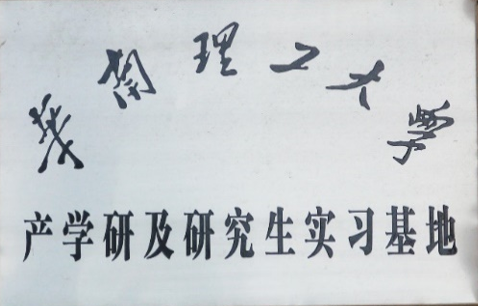 华南理工大学
产学研及研究生实习基地